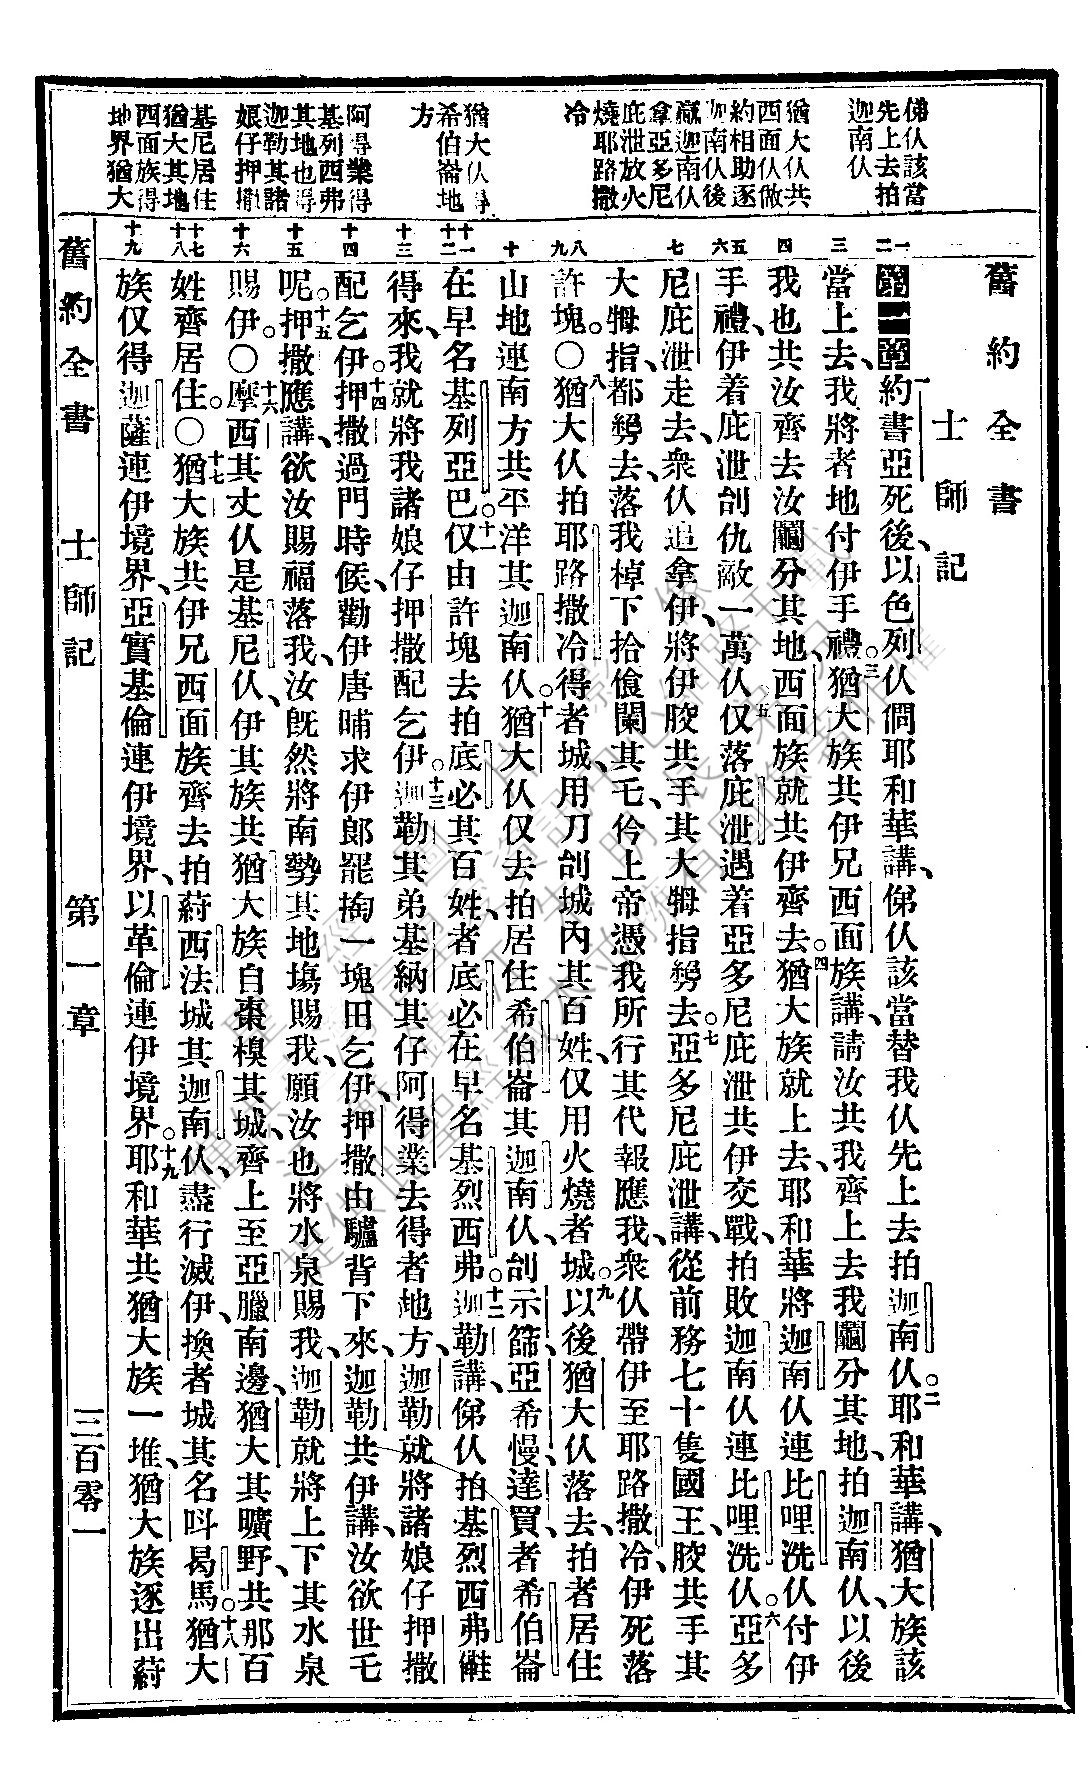 舊約全書
士師記
俤仏該當
先上去拍
迦南仏
猶大仏共
西面仏做
約相助逐
迦南仏後
贏迦南仏
拿亞多尼
庇泄放火
燒耶路撒
冷
猶大仏得
希伯崙地
方
阿得業得
基列西弗
其地也得
迦勒其諸
娘仔押撒
基尼居住
猶大其地
西面族得
地界猶大
一 二 三 四 五 六 七 八 九 十 十一 十二 十三 十四 十五 十六 十七 十八 十九
第一章 一約書亞死後、以色列仏問耶和華講、俤仏該當替我仏先上去拍迦南仏。二耶和華講、猶大族該
當上去、我將者地付伊手禮。三猶大族共伊兄西面族講、請汝共我齊上去我鬮分其地、拍迦南仏、以後
我也共汝齊去汝鬮分其地、西面族就共伊齊去。四猶大族就上去、耶和華將迦南仏連比哩洗仏付伊
手禮、伊着庇泄刣仇敵一萬仏。五仅落庇泄遇着亞多尼庇泄共伊交戰、拍敗迦南仏連比哩洗仏。六亞多
尼庇泄走去、衆仏追拿伊、將伊胶共手其大拇指剺去。七亞多尼庇泄講、從前務七十隻國王、胶共手其
大拇指都剺去、落我棹下拾食闌其乇、仱上帝憑我所行其代報應我、衆仏帶伊至耶路撒冷、伊死落
許塊。○八猶大仏拍耶路撒冷得者城、用刀刣城內其百姓、仅用火燒者城。九以後猶大仏落去、拍者居住
山地連南方共平洋其迦南仏。十猶大仏仅去拍居住希伯崙其迦南仏、刣示篩、亞希慢、達買、者希伯崙
在早名基列亞巴。十一仅由許塊去拍底必其百姓、者底必在早名基烈西弗。十二迦勒講、俤仏拍基烈西弗
得來、我就將我諸娘仔押撒配乞伊。十三迦勒其弟基納其仔阿得業去得者地方、迦勒就將諸娘仔押撒
配乞伊。十四押撒過門時候、勸伊唐晡求伊郎罷掏一塊田乞伊、押撒由驢背下來、迦勒共伊講、汝欲世乇
呢。十五押撒應講、欲汝賜福落我、汝旣然將南勢其地塲賜我、願汝也將水泉賜我、迦勒就將上下其水泉
賜伊。○十六摩西其丈仏是基尼仏、伊其族共猶大族自棗模其城、齊上至亞臘南邊、猶大其曠野、共那百
姓齊居住。○十七猶大族共伊兄西面族齊去拍蔚西法城其迦南仏、盡行滅伊、換者城其名呌曷馬。十八猶大
族仅得迦薩連伊境界、亞實基倫連伊境界、以革倫連伊境界。十九耶和華共猶大族一堆、猶大族逐出蔚
舊約全書 士師記 第一章 三百零一